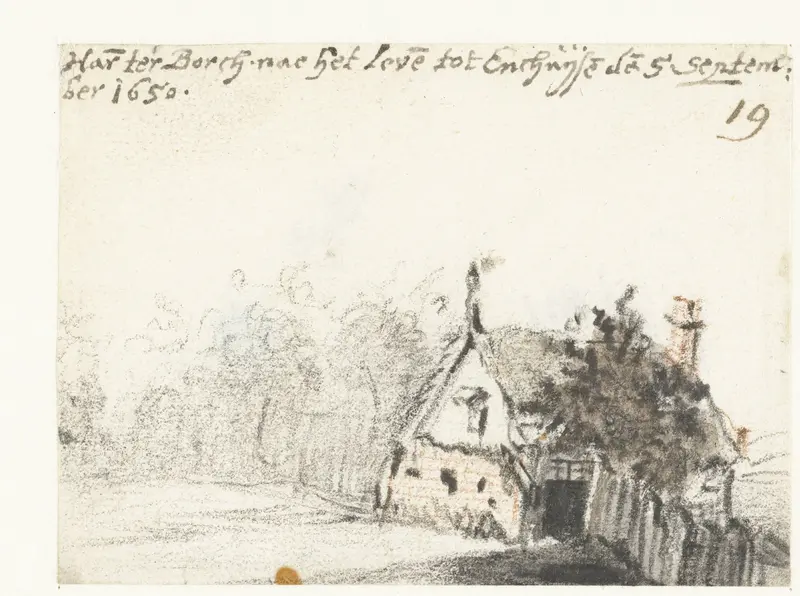 Har̅ ter Borch. nae het Leve̅ tot Enchuÿse̅ de̅ 5 Septem:
ber 1650.
19